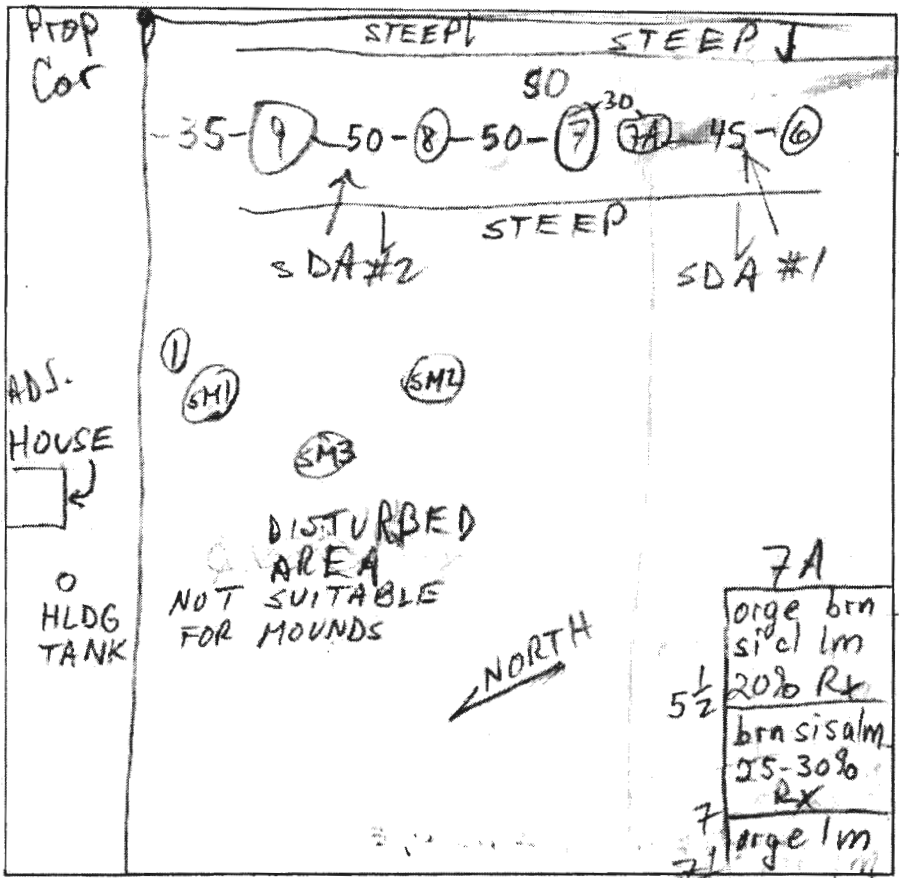 Prop
Cor
STEEP
STEEP
50
-35-9-50-8-50-7 30 7A-45-6
STEEP
SDA #2
SDA #1
1
SM1
SM2
SM3
ADJ.
HOUSE
DISTURBED
AREA
NOT SUITABLE
FOR MOUNDS
HLDG
TANK
NORTH
7A
orge brn
si cl lm
20% Rx
5 1/2
brn sisalm
25-30%
Rx
7
orge lm